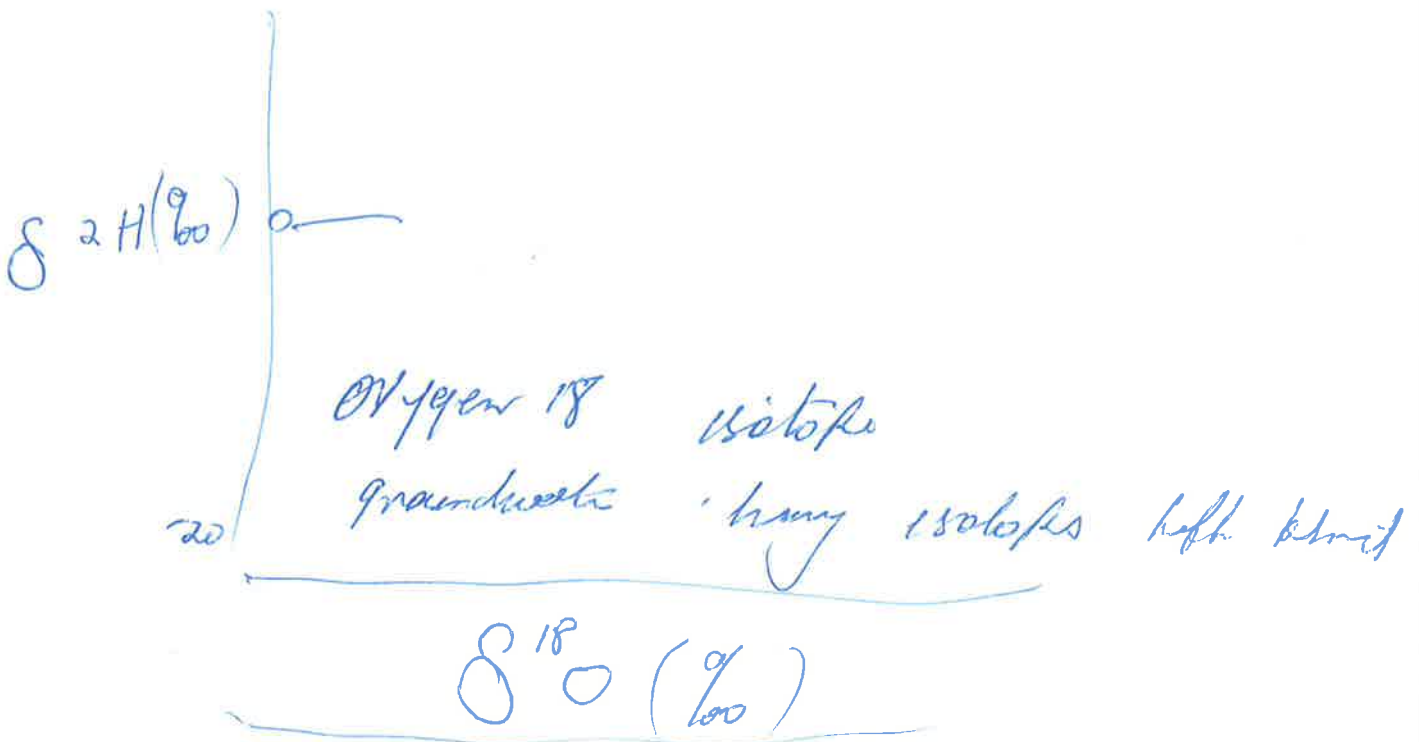 δ 2H(‰) 0
Oxygen 18 isotope
groundwate heavy isotopes left behind
-20
δ 18O (‰)